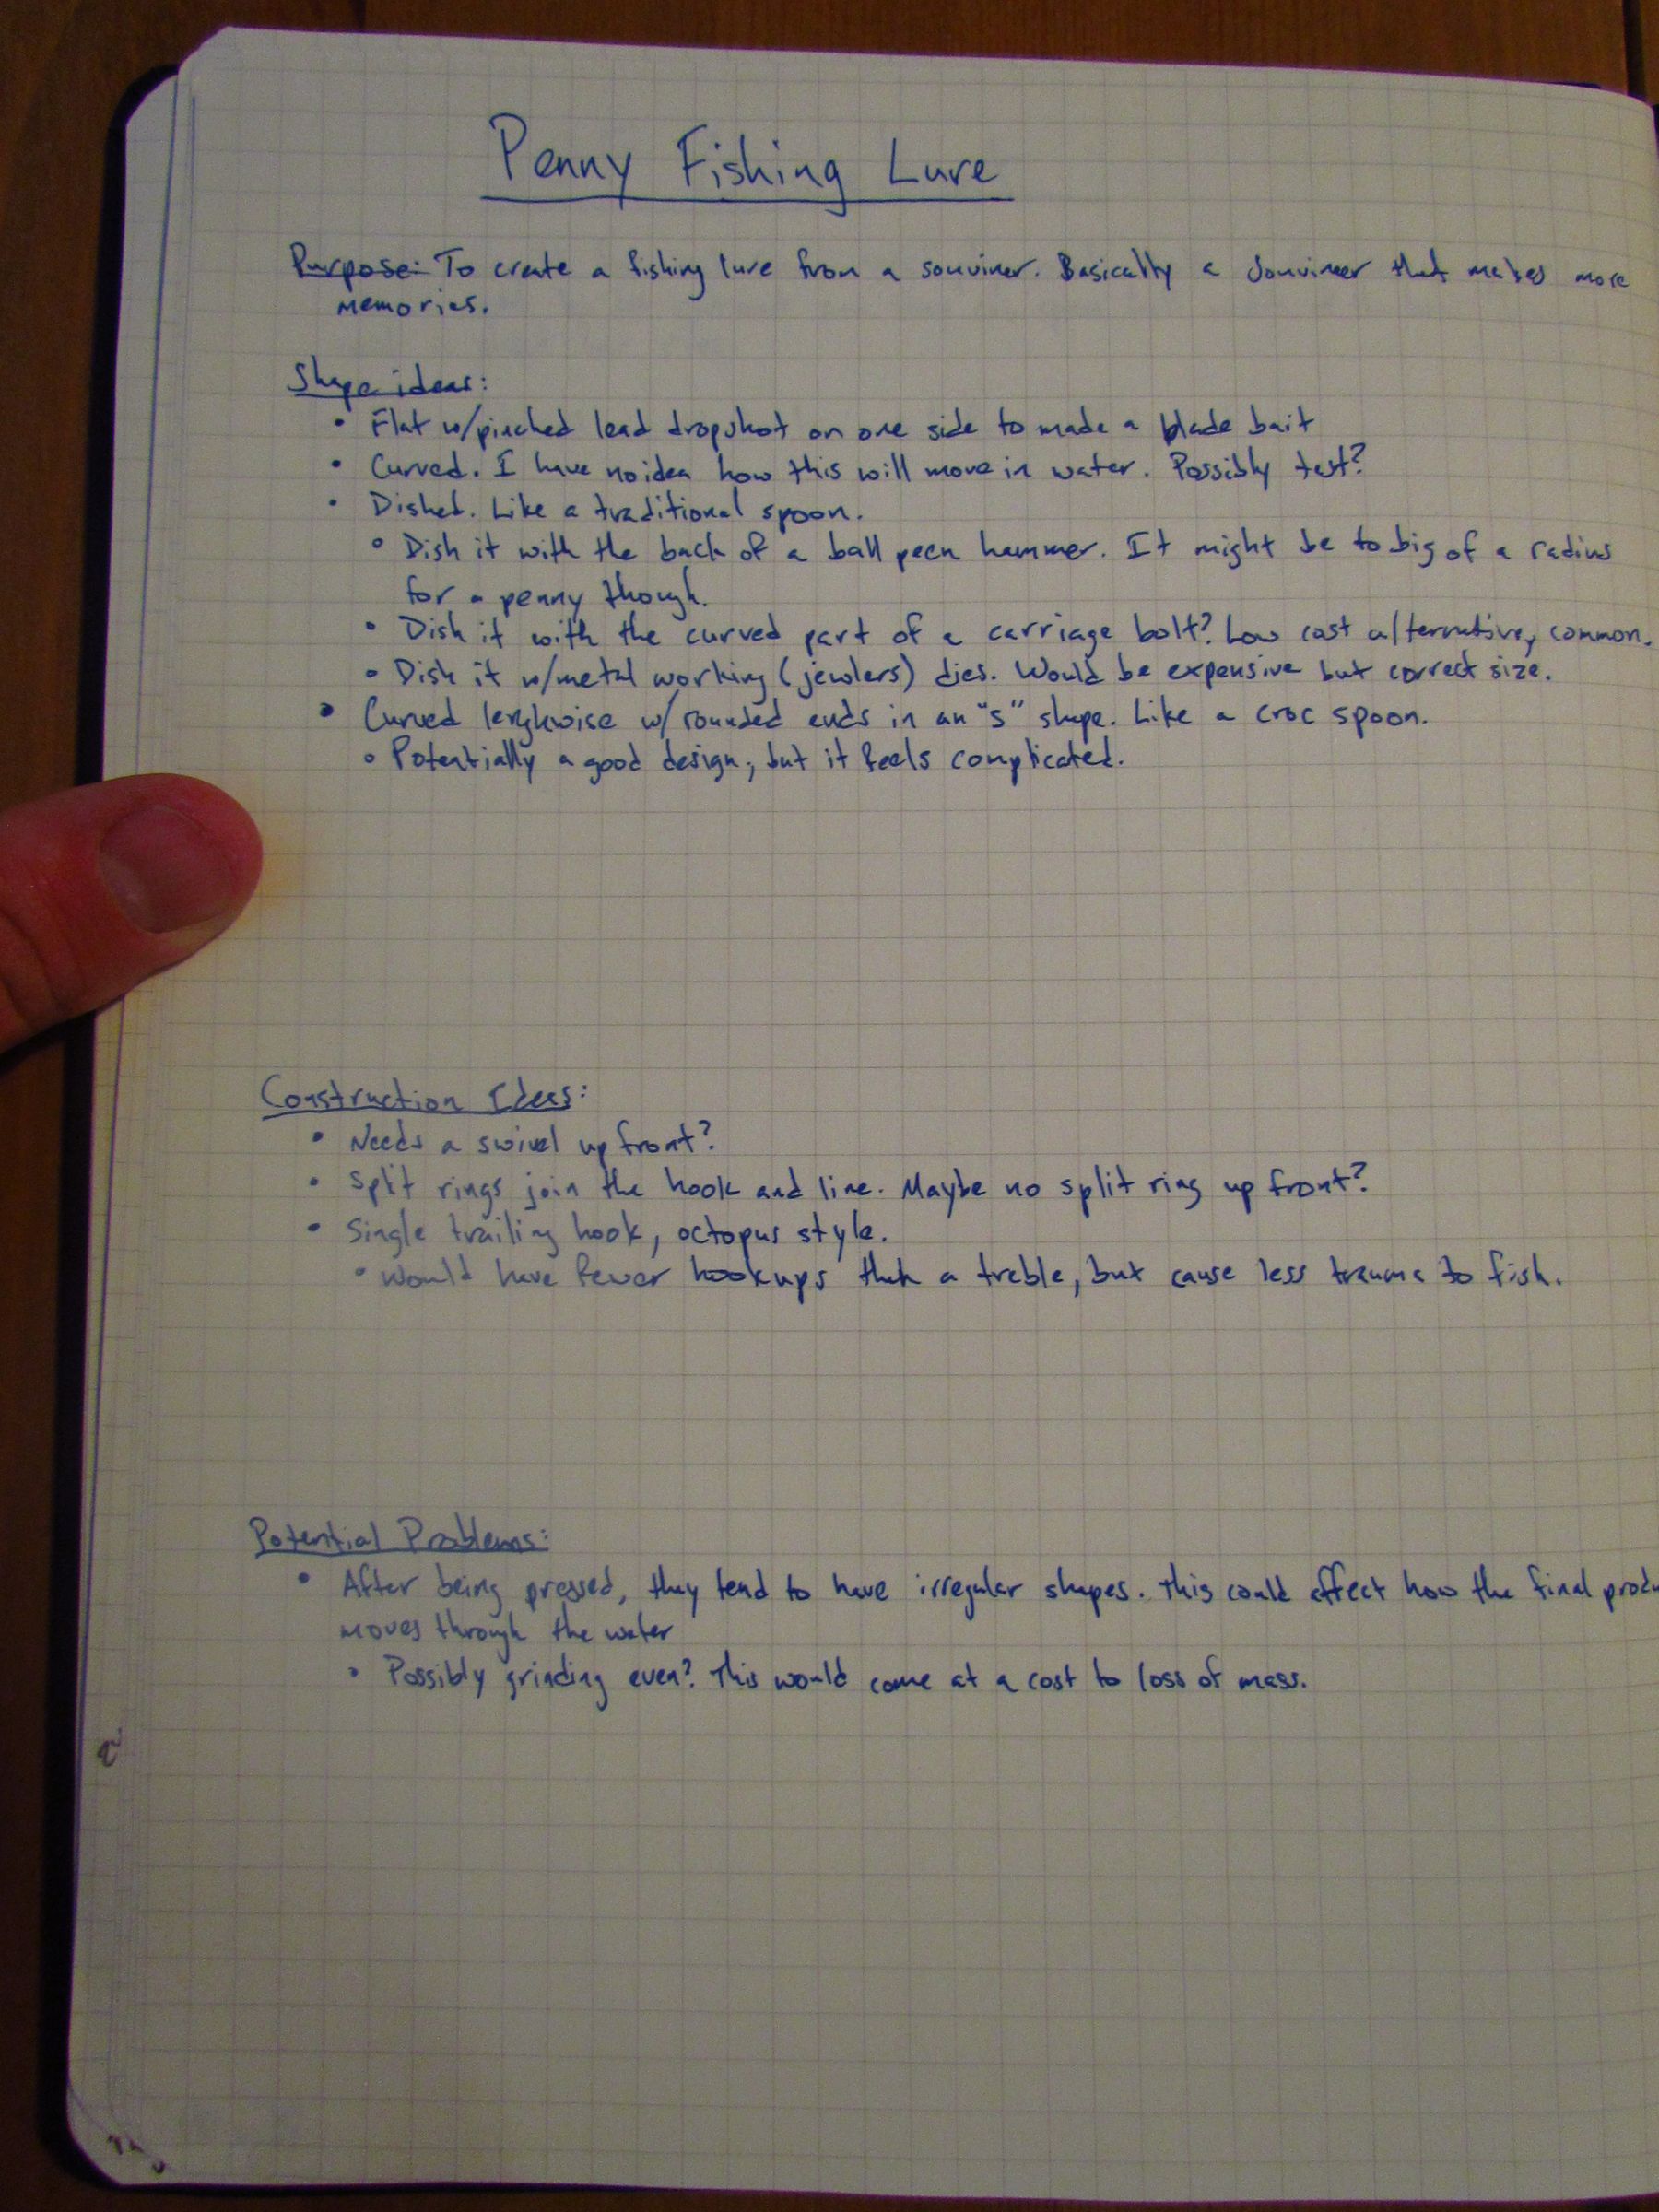 Penny Fishing Lure
Purpose: To create a fishing lure from a souviner. Basically a souvineer that makes more
memories.
Shape ideas:
• Flat w/pinched lead dropshot on one side to made a blade bait
• Curved. I have no idea how this will move in water. Possibly test?
• Dished. Like a traditional spoon.
• Dish it with the back of a ball peen hammer. It might be to big of a radius
for a penny though.
• Dish it with the curved part of a carriage bolt? Low cost alternative, common.
• Dish it w/metal working (jewlers) dies. Would be expensive but correct size.
• Curved lenghwise w/ rounded ends in an "s" shape. Like a croc spoon.
• Potentially a good design, but it feels complicated.
Construction Ideas:
• Needs a swivel up front?
• Split rings join the hook and line. Maybe no split ring up front?
• Single trailing hook, octopus style.
• Would have fewer hookups than a treble, but cause less trauma to fish.
Potential Problems:
• After being pressed, they tend to have irregular shapes. This could affect how the final produ
moves through the water
• Possibly grinding even? This would come at a cost to loss of mass.